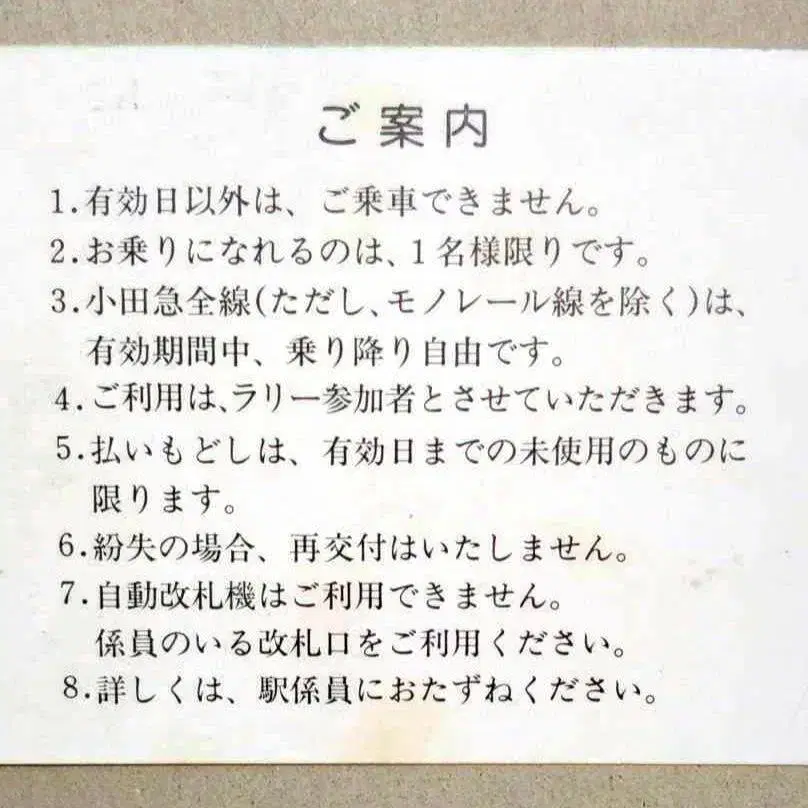 ご案内
1.有効日以外は、ご乗車できません。
2.お乗りになれるのは、1名様限りです。
3.小田急全線(ただし、モノレール線を除く)は、
有効期間中、乗り降り自由です。
4.ご利用は、ラリー参加者とさせていただきます。
5.払いもどしは、有効日までの未使用のものに
限ります。
6.紛失の場合、再交付はいたしません。
7.自動改札機はご利用できません。
係員のいる改札口をご利用ください。
8.詳しくは、駅係員におたずねください。